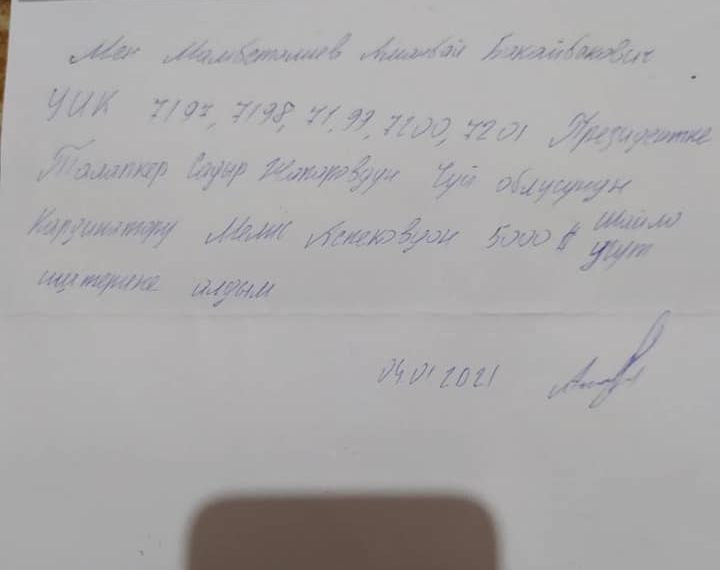 Мен Мамбеталиев Аманбай Бакайбакович
УИК 7197, 7198, 71,99, 7200, 7201 Президентке
Талапкер Садыр Жапаровдун Чуй облусундн
Кардинатору Мелис Аспековдон 5000 $ шайло
учут
иштерине алдым
04.01 2021